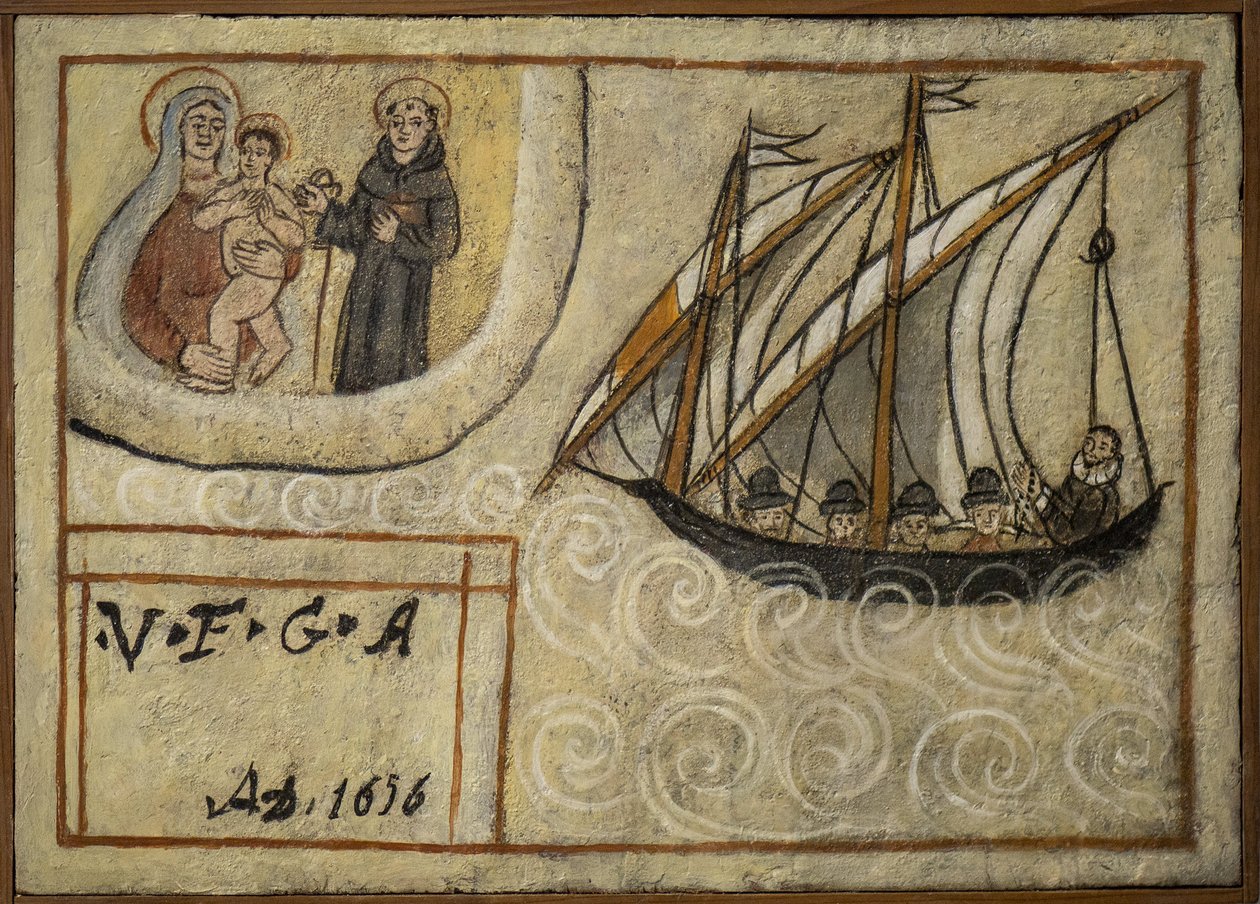 ·V·F·G·A
AD. 1656